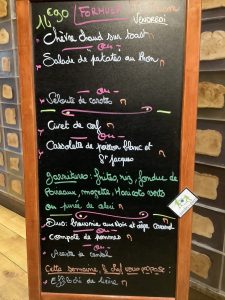 14€90 FORMULE
VENDREDI
Chèvre chaud sur toast
ou
Salade de patates au thon
ou
Velouté de carotte
Civet de cerf
ou
Cassolette de poisson blanc et
St Jacques
Garnitures: frites, riz, fondue de
Poireaux, mogette, Haricots verts
ou purée de céleri
Duo: brownie aux noix et crème Caramel
ou
Compote de pommes
ou
Cette semaine, le chef vous propose:
de lièvre